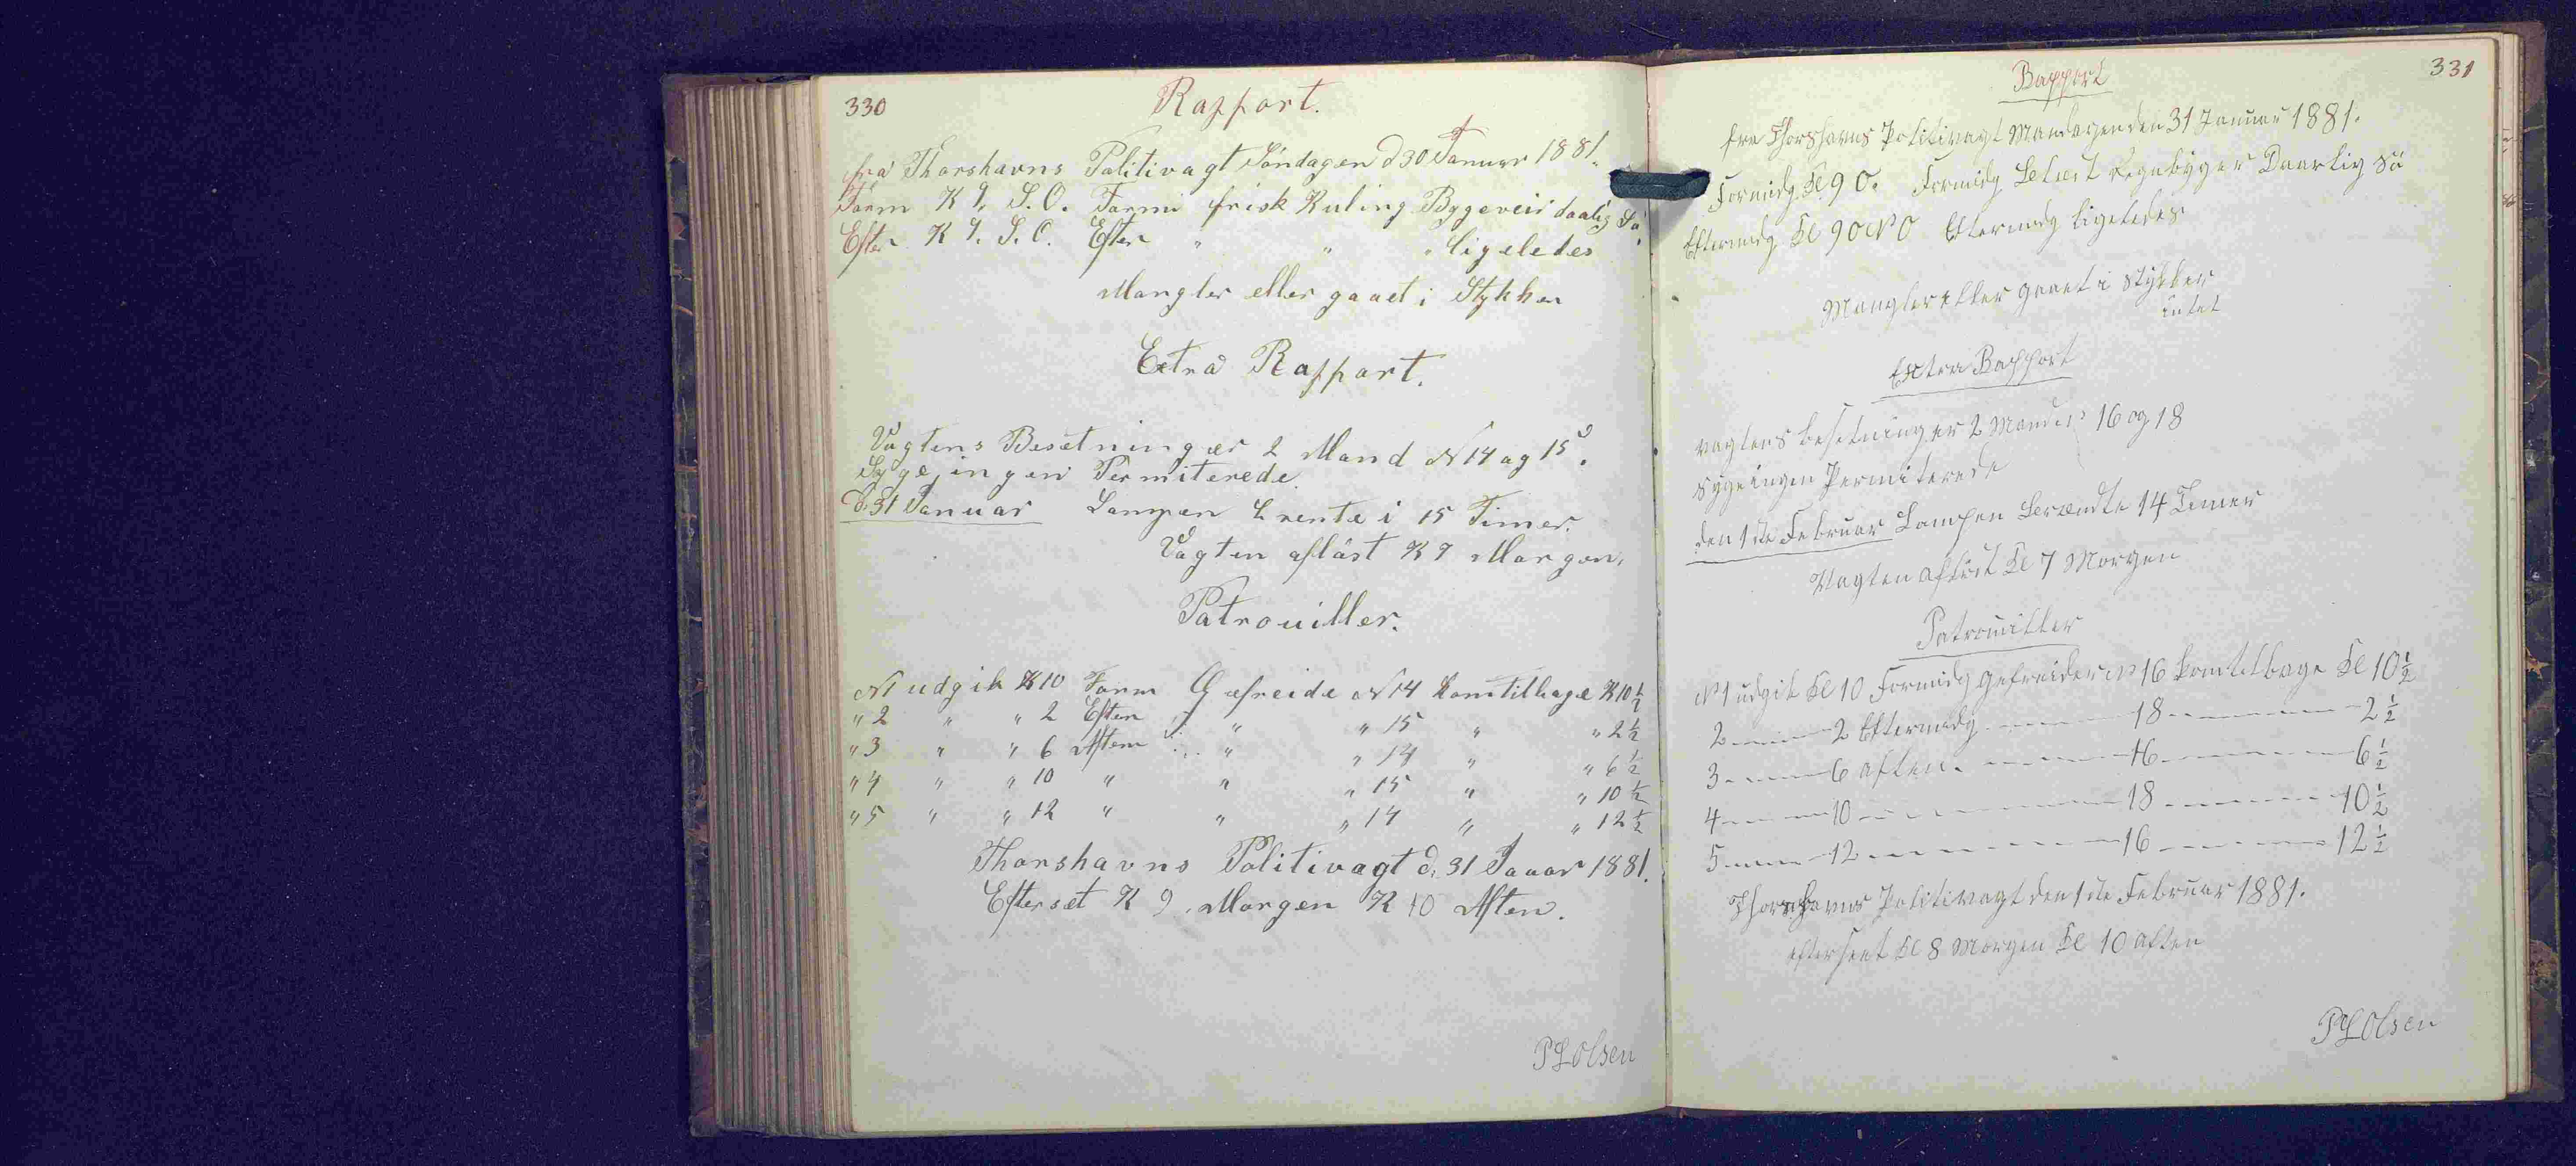 330
Rapport.
fra Thorshavns Politivagt Söndagen d 30 Januar 1881.
Form K 9. S.O. Formi frisk Kuling Bygeveir daalig Sö
Efter K 9. S.O. Efter " " " ligeledes
Mangler eller gaaet i Stykker
Extra Rapport.
Vagtens Besetning er 2 Mand N 14 og 15.
Syge ingen Permiterede.
D. 31 Januar Lampen brente i 15 Timer.
Vagten aflöst K 9 Morgen.
Patrouiller.
N 1 udgik K 10 Form Gefreide N 14 kom tilbage K 10 1/2
" 2 " " 2 Efter " " 15 " " 2 1/2
" 3 " " 6 Aften " " 14 " " 6 1/2
" 4 " " 10 " " " 15 " " 10 1/2
" 5 " " 12 " " " 14 " " 12 1/2
Thorshavns Politivagt d. 31 Januar 1881.
Efterset K 9 Morgen K 10 Aften.
PLOlsen
331
Rapport
fra Thorshavns Politivagt Mandagen den 31 Januar 1881.
Formidg Kl 9 O. Formidg Regnbyger Daarlig Sö
Eftermidg Kl 9 ONO Eftermidg ligeledes
Mangler eller gaaet i Stykker
intet
Extra Rapport
Vagtens besetning er 2 Mand N 16 og 18
Syge ingen Permiterede
den 1ste Februar Lampen brændte 14 Timer
Vagten aflöst Kl 7 Morgen
Patrouiller
N 1 udgik Kl 10 Formidg Gefreider N 16 kom tilbage Kl 10 1/2
2 - - - 2 Eftermidg - - - 18 - - - 2 1/2
3 - - - 6 Aften - - - 16 - - - 6 1/2
4 - - - 10 - - - 18 - - - 10 1/2
5 - - - 12 - - - 16 - - - 12 1/2
Thorshavns Politivagt den 1ste Februar 1881.
efterseet Kl 8 Morgen Kl 10 Aften
PLOlsen